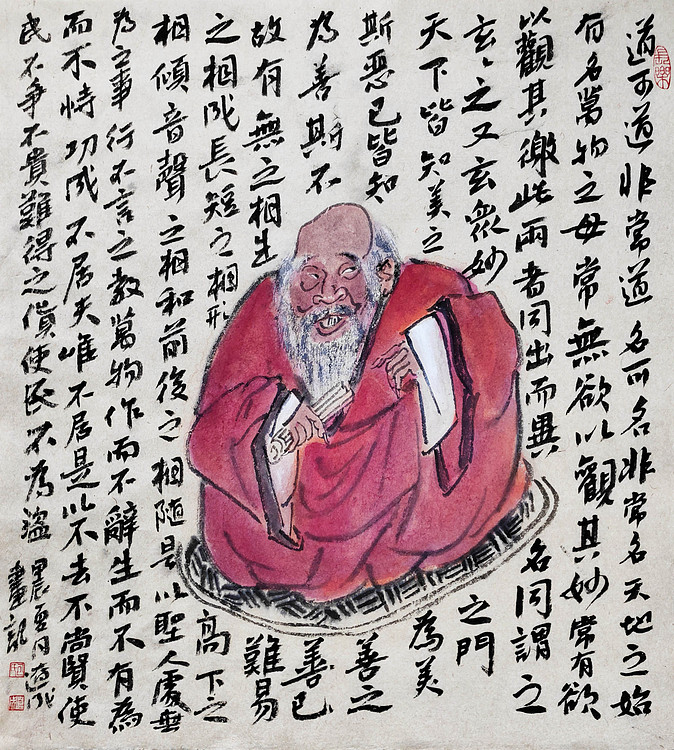 道可道非常道名可名非常名天地之始
有名萬物之母常無欲以觀其妙常有欲
以觀其徼此兩者同出而異名同謂之
玄〻之又玄衆妙之門
天下皆知美之為美
斯惡已皆知善之
為善斯不善已
故有無之相生難易
之相成長短之相形高下之
相傾音聲之相和前後之相隨是以聖人處無
為之事行不言之教萬物作而不辭生而不有為
而不恃功成不居夫唯不居是以不去不尚賢使
民不爭不貴難得之貨使民不為盜
夏月
畫記